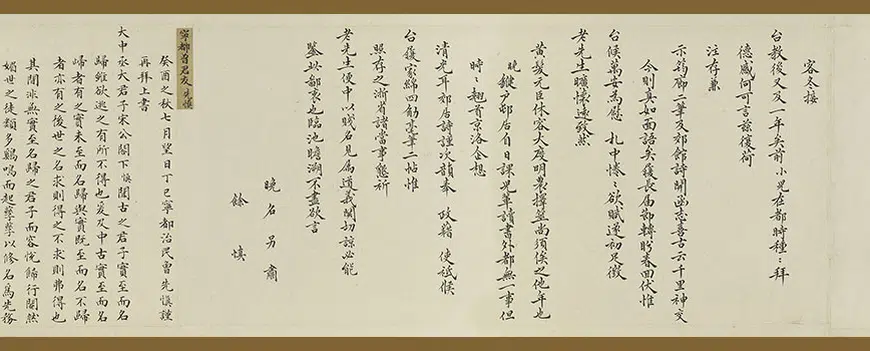 客冬接
台教後又及一年矣前小兒在都時種種拜
德感何可言茲復荷
注存兼
示筠廊二筆及郊館詩開函志喜古云千里神交
今則真如面語矣發長扇即轉盼春回伏惟
台候萬安為慰札中惓惓欲賦遂初足徵
老先生曠懷遠發然
黃髮元臣休容大度明農擇莖尚須俟之他年也
晚鍵戶邨居自日課兒輩讀書外都無一事但
時時翹首京洛企想
清光耳郊居詩謹次韻奉政藉使祗候
台履家綿四觔毫筆二帖惟
照存之浙省諸當事懇祈
老先生便中以賤名見屬道義關切諒必能
鑒此鄙衷也臨池瞻溯不盡欲言
晚名另肅
餘慎
寧都曾君友先慎
癸酉之秋七月望日丁巳寧都治民曾先慎謹
再拜上書
大中丞大君子宋公閣下慎聞古之君子實至而名
歸雖欲逃之有所不得也爰及中古實至而名
歸者有之實未至而名歸與實既至而名不歸
者亦有之後世之名求則得之不求則弗得也
其間非無實至名歸之君子而容悅歸行闇然
媚世之徒類多鷄鳴而起孳孳以修名為先務